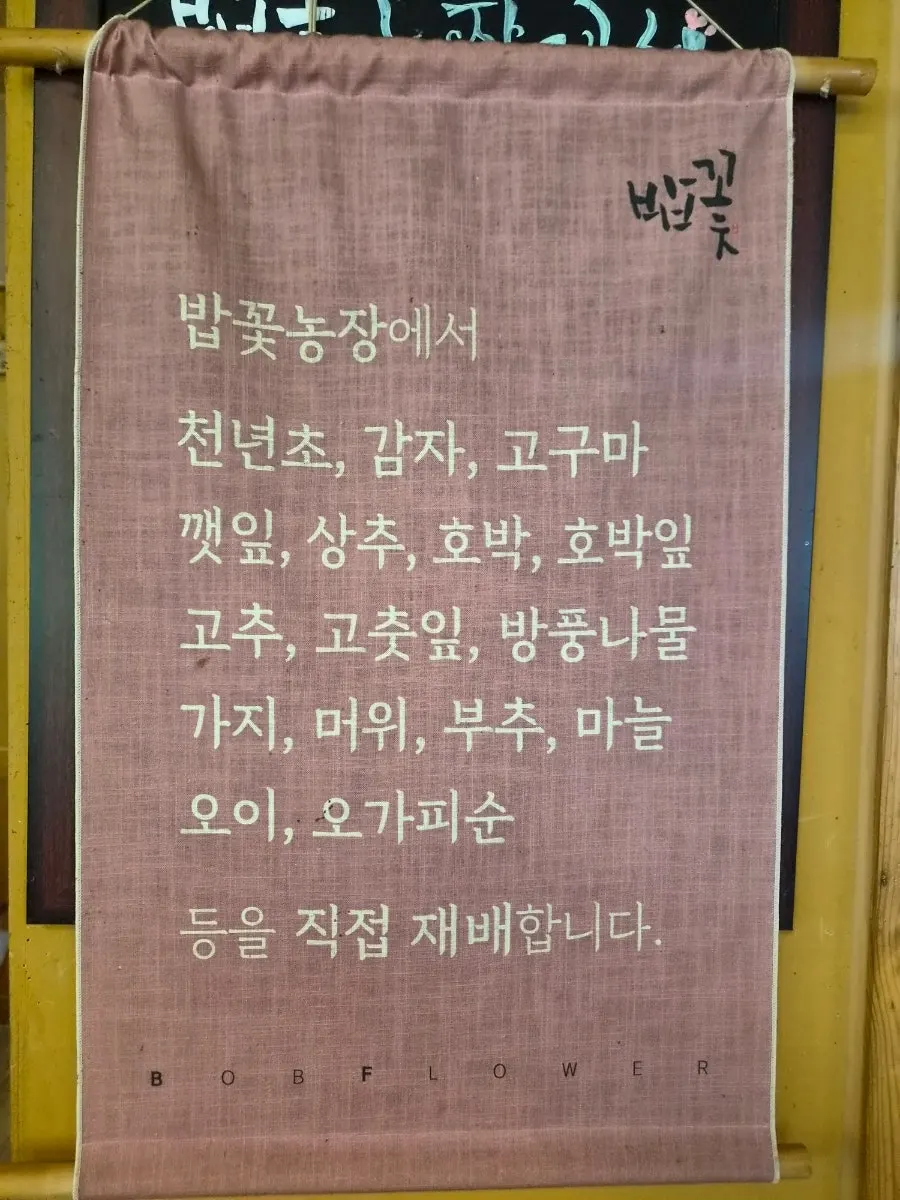 밥꽃
밥꽃농장에서
천년초, 감자, 고구마
깻잎, 상추, 호박, 호박잎
고추, 고춧잎, 방풍나물
가지, 머위, 부추, 마늘
오이, 오가피순
등을 직접 재배합니다.
BOBFLOWER